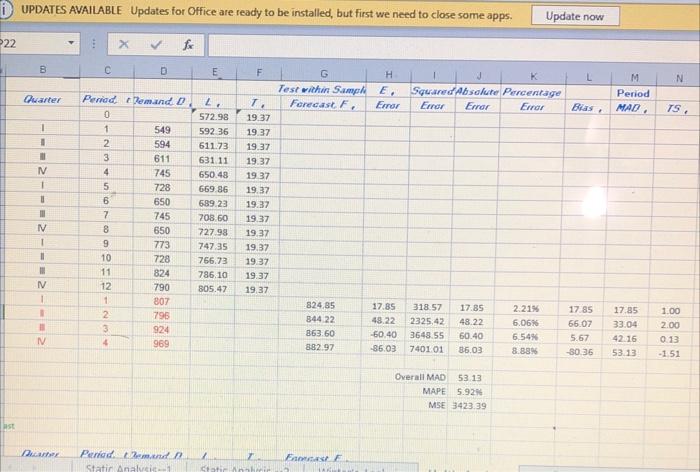 UPDATES AVAILABLE Updates for Office are ready to be installed, but first we need to close some apps. Update now
22 fx
B C D E F G H I J K L M N
Test within Sample E, Squared Absolute Percentage Period
Quarter Period, t Demand D, L, T, Forecast, F, Error Error Error Error Bias, MAD, TS,
0 572.98 19.37
I 1 549 592.36 19.37
II 2 594 611.73 19.37
III 3 611 631.11 19.37
IV 4 745 650.48 19.37
I 5 728 669.86 19.37
II 6 650 689.23 19.37
III 7 745 708.60 19.37
IV 8 650 727.98 19.37
I 9 773 747.35 19.37
II 10 728 766.73 19.37
III 11 824 786.10 19.37
IV 12 790 805.47 19.37
I 1 807 824.85 17.85 318.57 17.85 2.21% 17.85 17.85 1.00
II 2 796 844.22 48.22 2325.42 48.22 6.06% 66.07 33.04 2.00
III 3 924 863.60 -60.40 3648.55 60.40 6.54% 5.67 42.16 0.13
IV 4 969 882.97 -86.03 7401.01 86.03 8.88% -80.36 53.13 -1.51
Overall MAD 53.13
MAPE 5.92%
MSE 3423.39
ast
Quarter Period, t Demand D T Forecast F
Static Analysis--1 Static Analysis--2